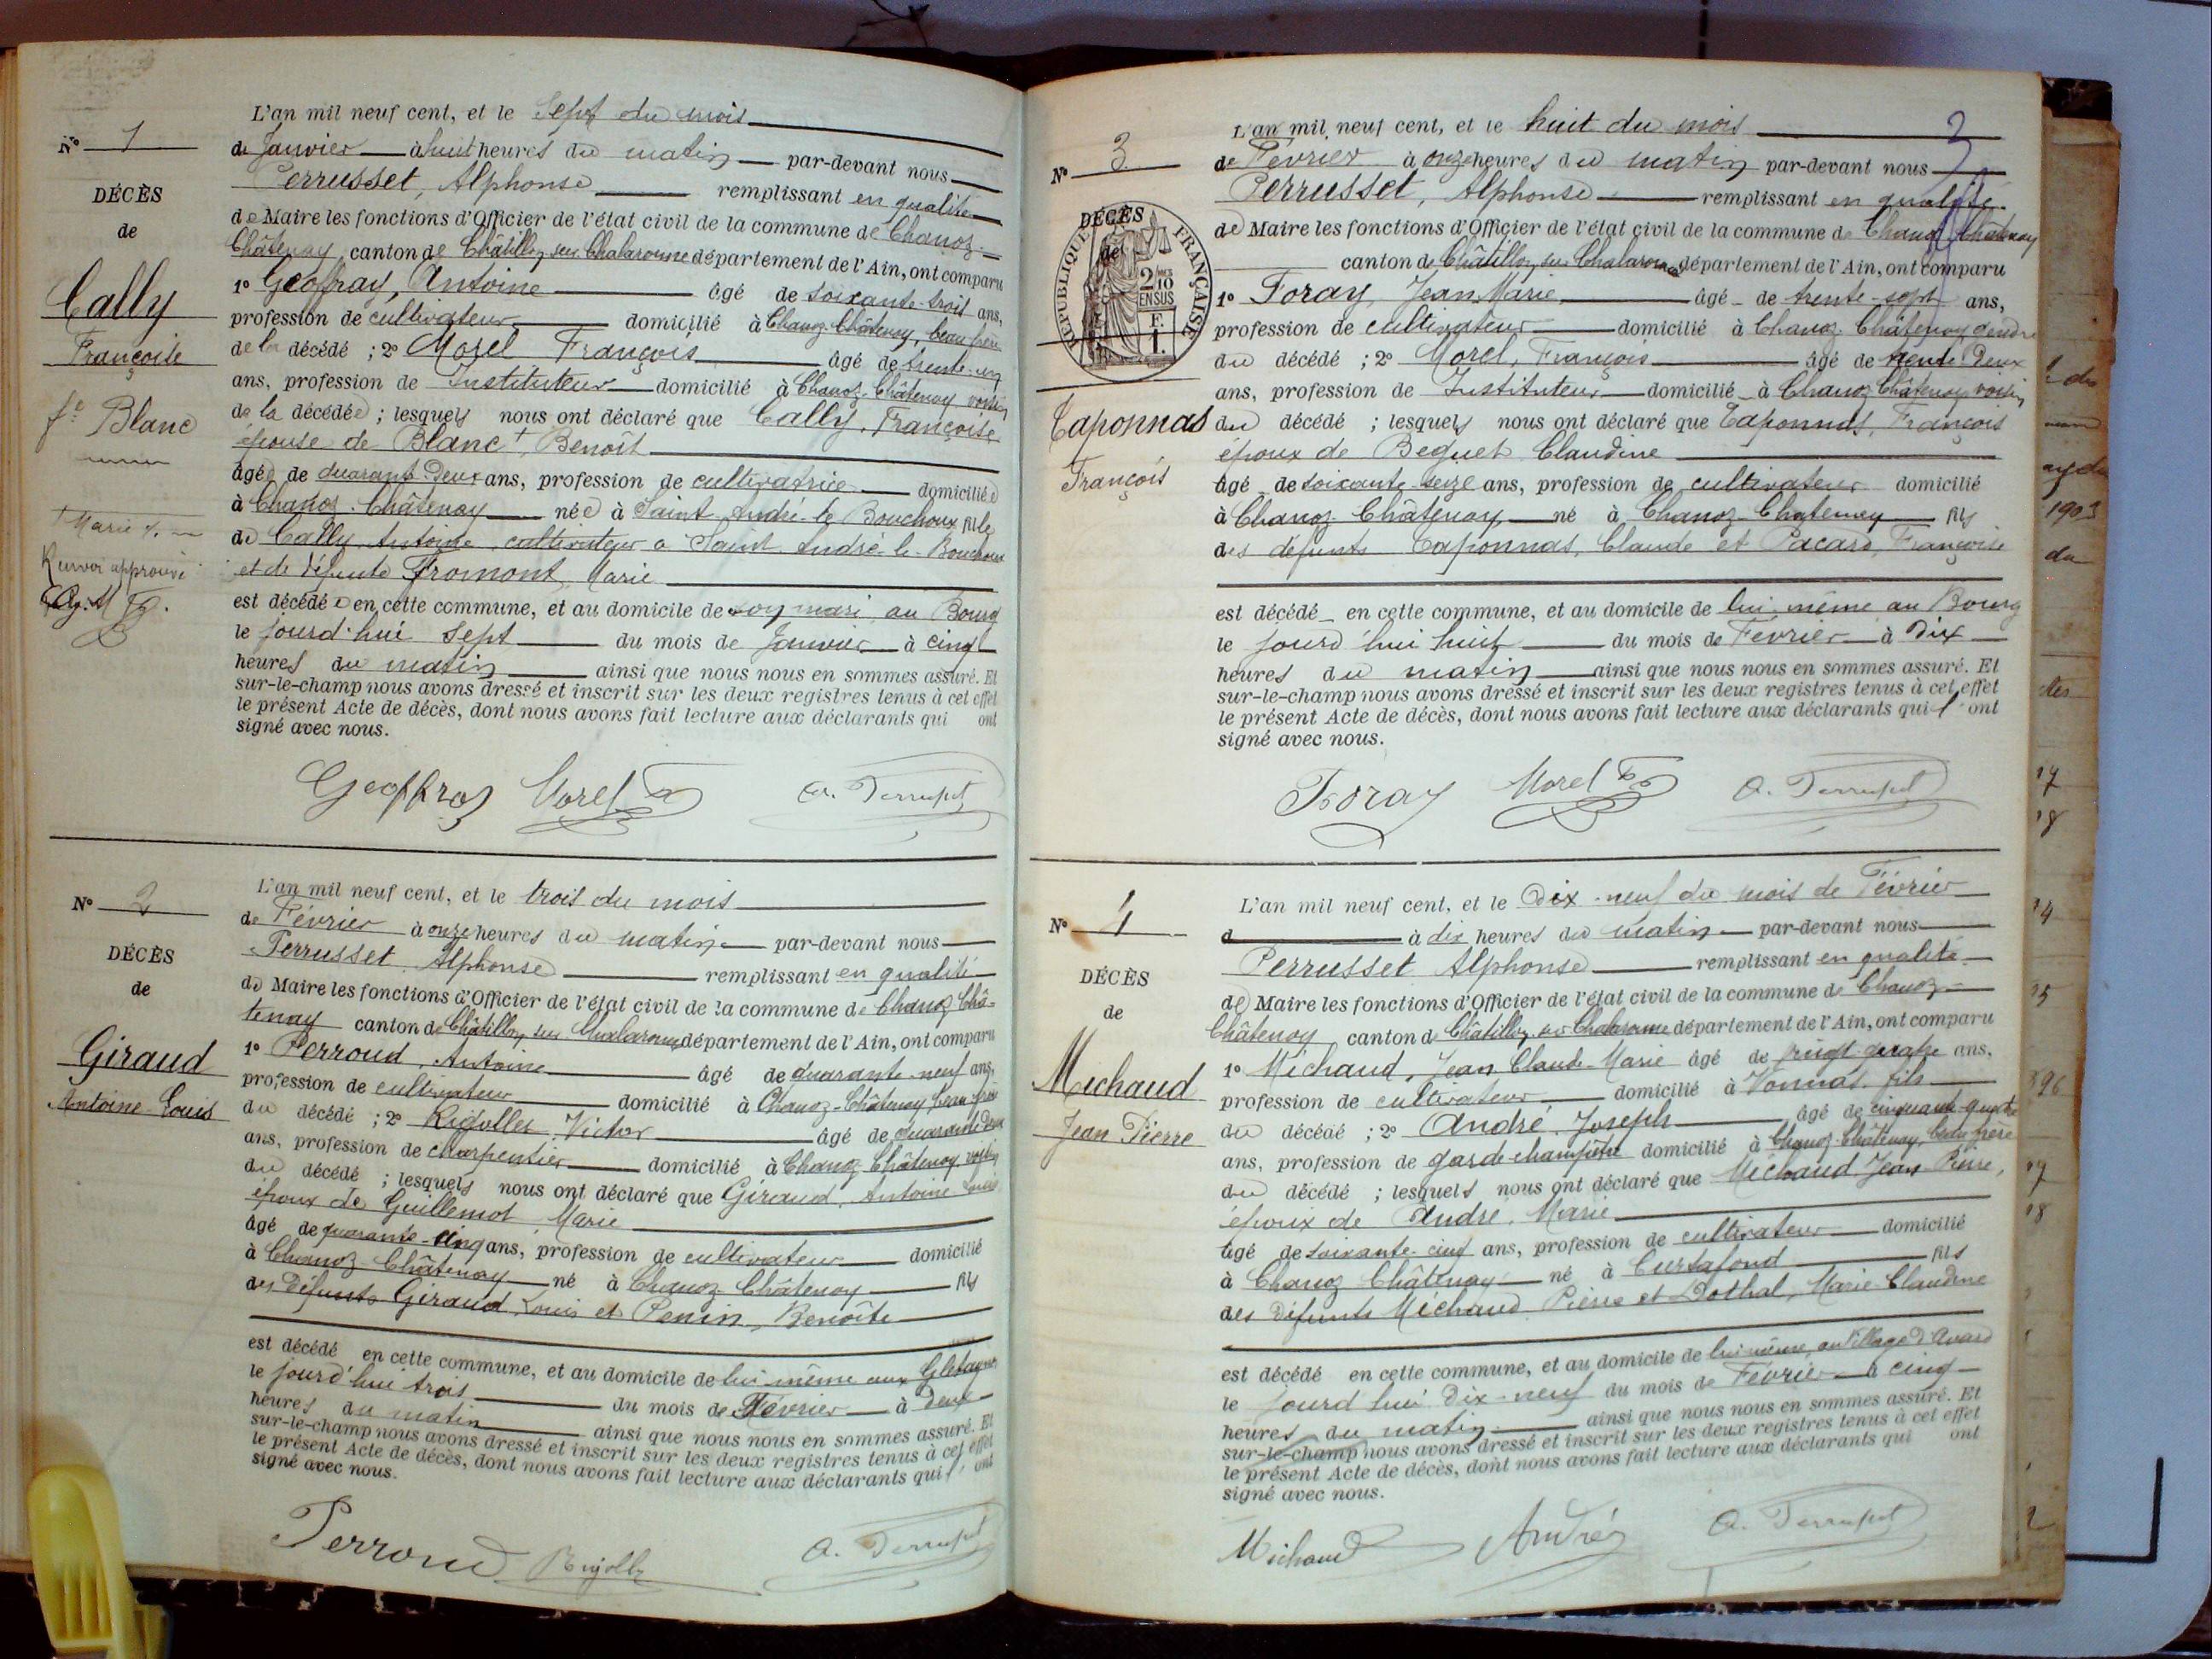 N° 1
DÉCÈS
de
Cally
Françoise
fe Blanc
+ Marie
Renvoi approuvé
L'an mil neuf cent, et le sept du mois
de Janvier à huit heures du matin par-devant nous
Perrusset, Alphonse remplissant en qualité
de Maire les fonctions d'Officier de l'état civil de la commune de Chanoz-
Châtenay, canton de Châtillon sur Chalaronne département de l'Ain, ont comparu
1° Geoffray, Antoine âgé de soixante-trois ans,
profession de cultivateur domicilié à Chanoz-Châtenay, beau-frère
de la décédé ; 2° Morel François âgé de trente-un
ans, profession de Instituteur domicilié à Chanoz-Châtenay voisin
de la décédée ; lesquels nous ont déclaré que Cally, Françoise
épouse de Blanc +, Benoît
âgée de quarante-deux ans, profession de cultivatrice domiciliée
à Chanoz-Châtenay née à Saint André-le Bouchoux fille
de Cally Antoine, cultivateur à Saint André-le-Bouchoux
et de défunte Fromont, Marie
est décédée en cette commune, et au domicile de son mari, au Bourg
le jourd'hui sept du mois de Janvier à cinq
heures du matin ainsi que nous nous en sommes assuré. Et
sur-le-champ nous avons dressé et inscrit sur les deux registres tenus à cet effet
le présent Acte de décès, dont nous avons fait lecture aux déclarants qui ont
signé avec nous.
Geoffray Morel A. Perrusset
N° 2
DÉCÈS
de
Giraud
Antoine-Louis
L'an mil neuf cent, et le trois du mois
de Février à onze heures du matin par-devant nous
Perrusset, Alphonse remplissant en qualité
de Maire les fonctions d'Officier de l'état civil de la commune de Chanoz-Châ-
tenay canton de Châtillon sur Chalaronne département de l'Ain, ont comparu
1° Perroud, Antoine âgé de quarante-neuf ans,
profession de cultivateur domicilié à Chanoz-Châtenay, beau-frère
du décédé ; 2° Rigollet, Victor âgé de quarante-deux
ans, profession de charpentier domicilié à Chanoz-Châtenay, voisin
du décédé ; lesquels nous ont déclaré que Giraud, Antoine Louis
époux de Guillemot, Marie
âgé de quarante-cinq ans, profession de cultivateur domicilié
à Chanoz-Châtenay né à Chanoz-Châtenay fils
des défunts Giraud, Louis et Penin, Benoîte
est décédé en cette commune, et au domicile de lui-même aux
le jourd'hui trois du mois de Février à deux
heures du matin ainsi que nous nous en sommes assuré. Et
sur-le-champ nous avons dressé et inscrit sur les deux registres tenus à cet effet
le présent Acte de décès, dont nous avons fait lecture aux déclarants qui l' ont
signé avec nous.
Perroud Rigollet A. Perrusset
3
N° 3
DÉCÈS
de
RÉPUBLIQUE FRANÇAISE
2/10
EN SUS
Taponnas
François
L'an mil neuf cent, et le huit du mois
de Février à onze heures du matin par-devant nous
Perrusset, Alphonse remplissant en qualité
de Maire les fonctions d'Officier de l'état civil de la commune de Chanoz-Châtenay
canton de Châtillon sur Chalaronne département de l'Ain, ont comparu
1° Foray, Jean-Marie âgé de trente-sept ans,
profession de cultivateur domicilié à Chanoz-Châtenay gendre
du décédé ; 2° Morel, François âgé de trente-deux
ans, profession de Instituteur domicilié à Chanoz-Châtenay voisin
du décédé ; lesquels nous ont déclaré que Taponnas, François
époux de Bequet Claudine
âgé de soixante-seize ans, profession de cultivateur domicilié
à Chanoz-Châtenay né à Chanoz-Chatenay fils
des défunts Taponnas, Claude et Pacard, Françoise
est décédé en cette commune, et au domicile de lui-même au Bourg
le jourd'hui huit du mois de Février à dix
heures du matin ainsi que nous nous en sommes assuré. Et
sur-le-champ nous avons dressé et inscrit sur les deux registres tenus à cet effet
le présent Acte de décès, dont nous avons fait lecture aux déclarants qui l' ont
signé avec nous.
Foray Morel A. Perrusset
N° 4
DÉCÈS
de
Michaud
Jean Pierre
L'an mil neuf cent, et le dix-neuf du mois de Février
d à dix heures du matin par-devant nous
Perrusset Alphonse remplissant en qualité
de Maire les fonctions d'Officier de l'état civil de la commune de Chanoz-
Châtenay canton de Châtillon sur Chalaronne département de l'Ain, ont comparu
1° Michaud, Jean Claude-Marie âgé de vingt-quatre ans,
profession de cultivateur domicilié à Vonnas, fils
du décédé ; 2° André, Joseph âgé de cinquante-quatre
ans, profession de garde-champêtre domicilié à Chanoz-Châtenay, beau-frère
du décédé ; lesquels nous ont déclaré que Michaud Jean Pierre,
époux de André, Marie
âgé de soixante-cinq ans, profession de cultivateur domicilié
à Chanoz Châtenay né à Curtafond fils
des défunts Michaud Pierre et Dothal, Marie-Claudine
est décédé en cette commune, et au domicile de lui-même, au village d'Avard
le jourd'hui dix-neuf du mois de Février à cinq
heures du matin ainsi que nous nous en sommes assuré. Et
sur-le-champ nous avons dressé et inscrit sur les deux registres tenus à cet effet
le présent Acte de décès, dont nous avons fait lecture aux déclarants qui ont
signé avec nous.
Michaud André A. Perrusset
1903